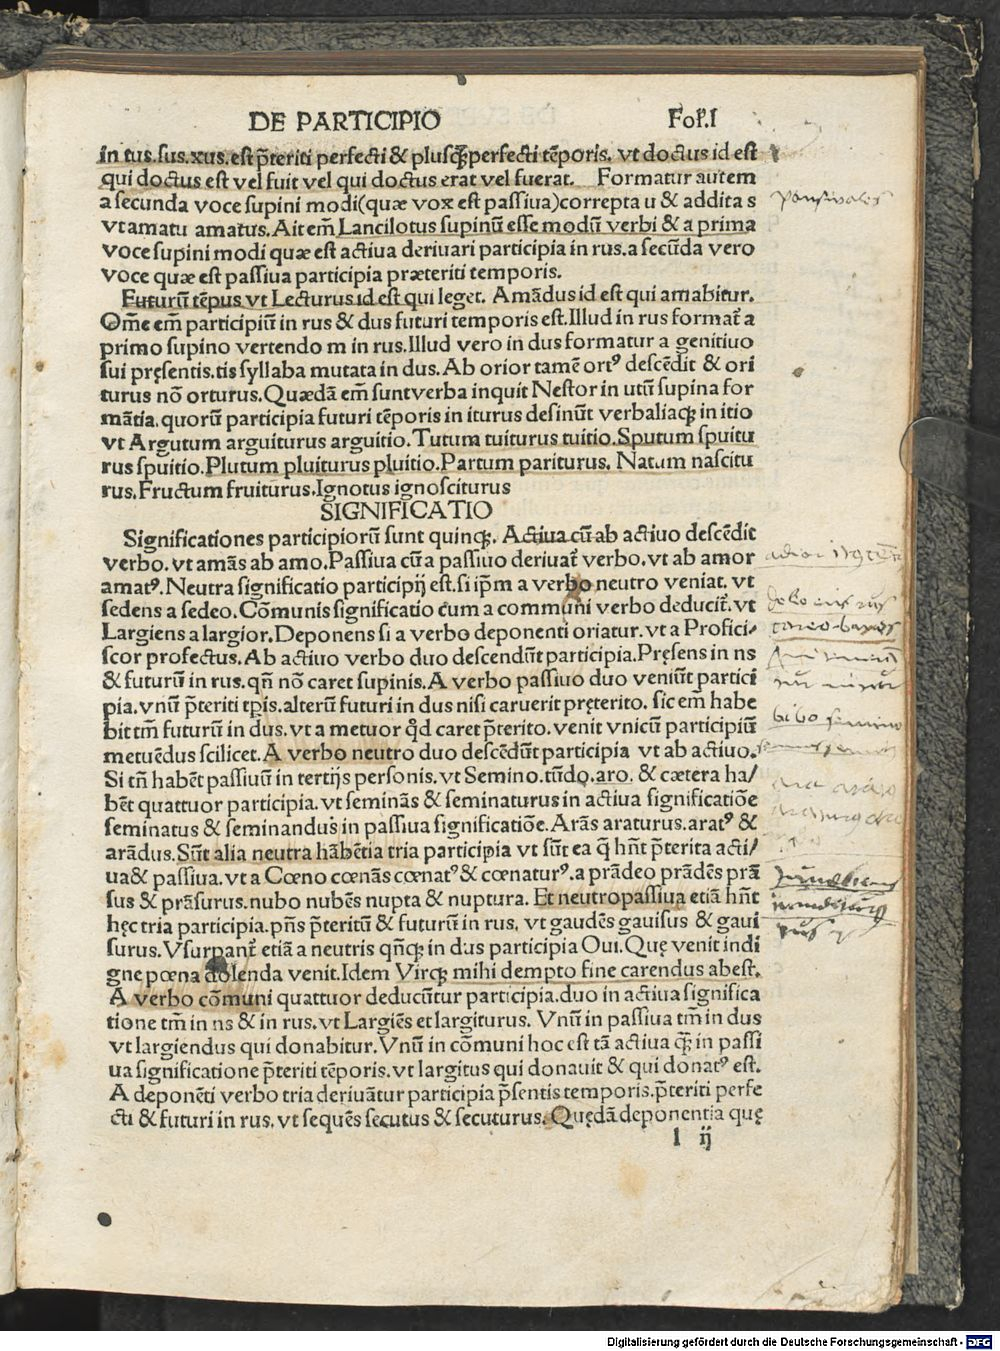 DE PARTICIPIO Fol.I
in tus.sus.xus.est p̃teriti perfecti & plusq̃perfecti tẽporis. vt doctus id est
qui doctus est vel fuit vel qui doctus erat vel fuerat. Formatur autem
a secunda voce supini modi(quæ vox est passiua)correpta u & addita s
vt amatu amatus. Ait em̃ Lancilotus supinũ esse modũ verbi & a prima
voce supini modi quæ est actiua deriuari participia in rus. a secũda vero
voce quæ est passiua participia præteriti temporis.
Futurũ tẽpus vt Lecturus id est qui leget. Amãdus id est qui amabitur.
Om̃e em̃ participiũ in rus & dus futuri temporis est. Illud in rus format̃ a
primo supino vertendo m in rus. Illud vero in dus formatur a genitiuo
sui pręsentis. tis syllaba mutata in dus. Ab orior tamẽ ortꝰ descẽdit & ori
turus nõ orturus. Quædã em̃ sunt verba inquit Nestor in utũ supina for
mãtia. quorũ participia futuri tẽporis in iturus desinũt verbaliaqȝ in itio
vt Argutum arguiturus arguitio. Tutum tuiturus tuitio. Sputum spuitu
rus spuitio. Plutum pluiturus pluitio. Partum pariturus. Natum nascitu
rus. Fructum fruiturus. Ignotus ignosciturus
SIGNIFICATIO
Significationes participiorũ sunt quinqȝ. Actiua cũ ab actiuo descẽdit
verbo. vt amãs ab amo. Passiua cũ a passiuo deriuat̃ verbo. vt ab amor
amatꝰ. Neutra significatio participij est. si ip̃m a verbo neutro veniat. vt
sedens a sedeo. Cõmunis significatio cum a communi verbo deducit̃. vt
Largiens a largior. Deponens si a verbo deponenti oriatur. vt a Profici/
scor profectus. Ab actiuo verbo duo descendũt participia. Pręsens in ns
& futurũ in rus. qñ nõ caret supinis. A verbo passiuo duo veniũt partici
pia. vnũ p̃teriti tp̃is. alterũ futuri in dus nisi caruerit pręterito. sic em̃ habe
bit tm̃ futurũ in dus. vt a metuor q̇d caret p̃terito. venit vnicũ participiũ
metuẽdus scilicet. A verbo neutro duo descẽdũt participia vt ab actiuo.
Si tñ habẽt passiuũ in tertijs personis. vt Semino. tũdo. aro. & cætera ha/
bẽt quattuor participia. vt seminãs & seminaturus in actiua significatiõe
seminatus & seminandus in passiua significatiõe. Arãs araturus. aratꝰ &
arãdus. Sũt alia neutra hãbẽtia tria participia vt sũt ea q̃ hñt p̃terita acti/
ua & passiua. vt a Cœno cœnãs cœnatꝰ & cœnaturꝰ. a prãdeo prãdẽs prã
sus & prãsurus. nubo nubẽs nupta & nuptura. Et neutropassiua etiã hñt
hęc tria participia. pñs p̃teritũ & futurũ in rus. vt gaudẽs gauisus & gaui
surus. Vsurpant̃ etiã a neutris qñqȝ in dus participia Oui. Quę venit indi
gne pœna dolenda venit. Idem Virqȝ mihi dempto fine carendus abest.
A verbo cõmuni quattuor deducũtur participia. duo in actiua significa
tione tm̃ in ns & in rus. vt Largiẽs et largiturus. Vnũ in passiua tm̃ in dus
vt largiendus qui donabitur. Vnũ in cõmuni hoc est tã actiua qȝ̃ in passi
ua significatione p̃teriti tẽporis. vt largitus qui donauit & qui donatꝰ est.
A deponẽti verbo tria deriuãtur participia p̃sentis temporis. p̃teriti perfe
cti & futuri in rus. vt sequẽs secutus & secuturus. Quędã deponentia quę
l ij
Digitalisierung gefördert durch die Deutsche Forschungsgemeinschaft - DFG